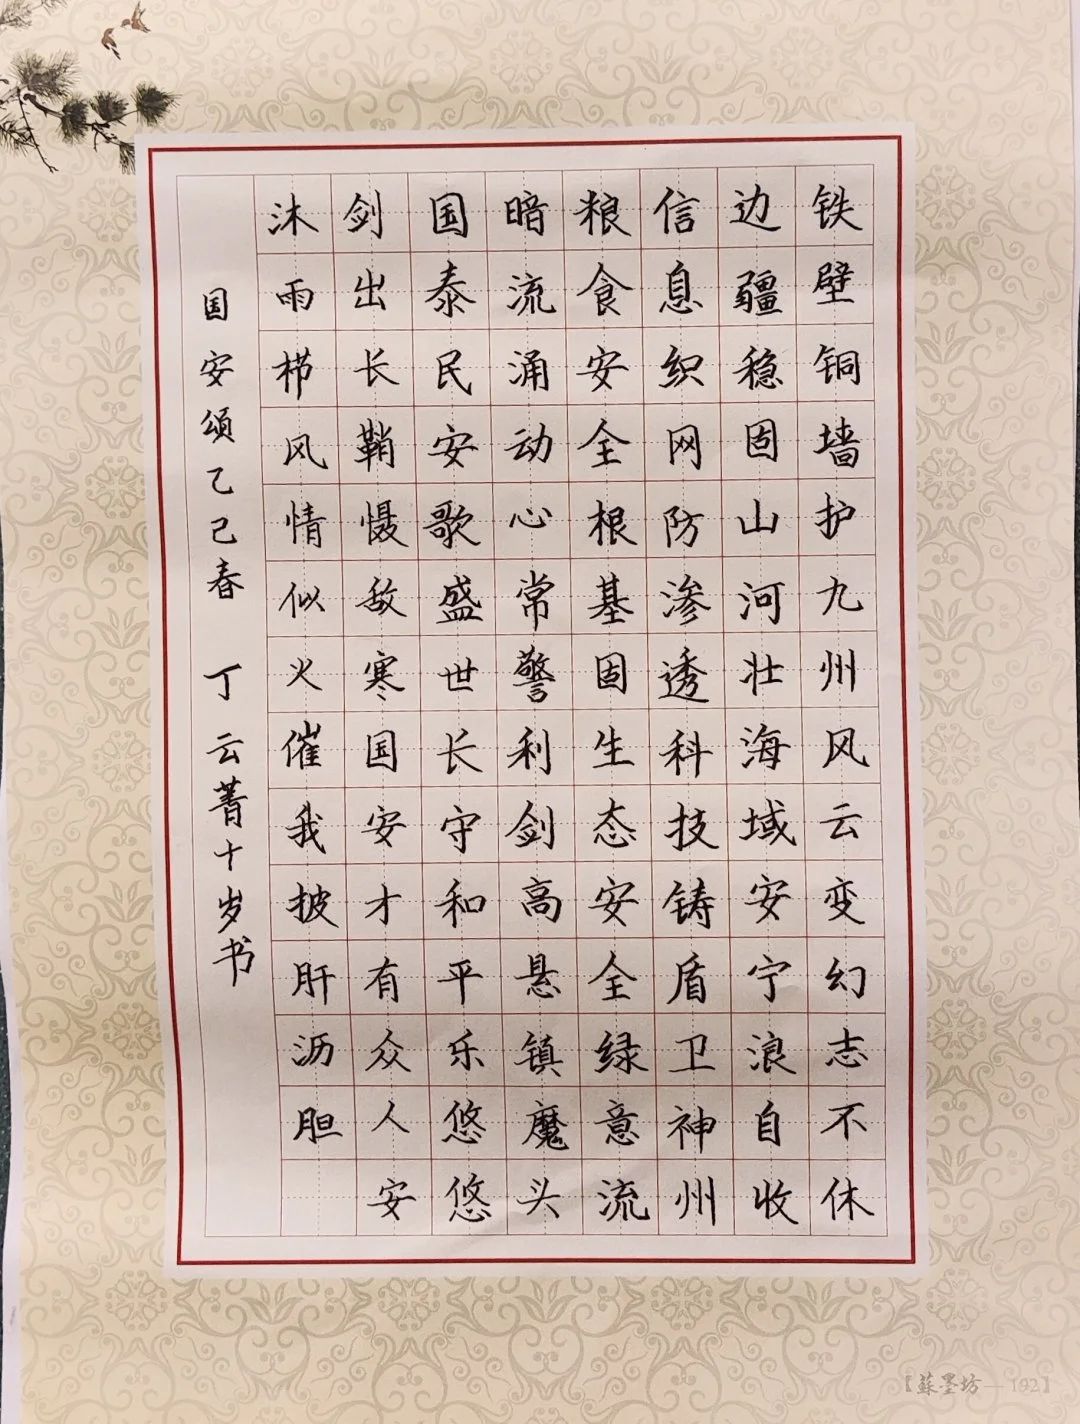 铁壁铜墙护九州风云变幻志不休
边疆稳固山河壮海域安宁浪自收
信息织网防渗透科技铸盾卫神州
粮食安全根基固生态安全绿意流
暗流涌动心常警利剑高悬镇魔头
国泰民安歌盛世长守和平乐悠悠
剑出长鞘慑敌寒国安才有众人安
沐雨栉风情似火催我披肝沥胆
国安颂乙己春 丁云菁十岁书
【蘇墨坊—192】